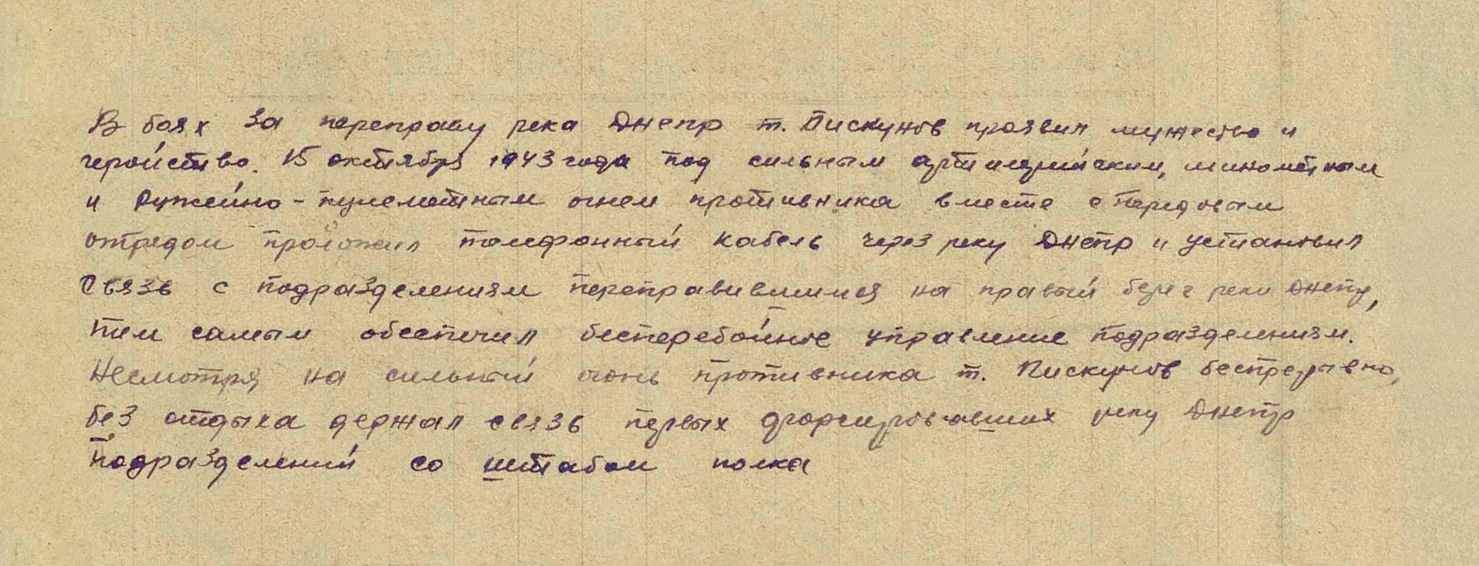 В боях за переправу река Днепр т. Пискунов проявил мужество и
геройство. 15 октября 1943 года под сильным артилерийским, минометным
и Ружейно - пулеметным огнем противника вместе с передовым
отрядом проложил телефонный кабель через реку Днепр и установил
связь с подразделениям переправившимся на правый берег реки Днепр,
тем самым обеспечил бесперебойное управление подразделениям.
Несмотря на сильный огонь противника т. Пискунов беспрерывно,
без отдыха держал связь первых форсировавших реку Днепр
подразделений со штабом полка